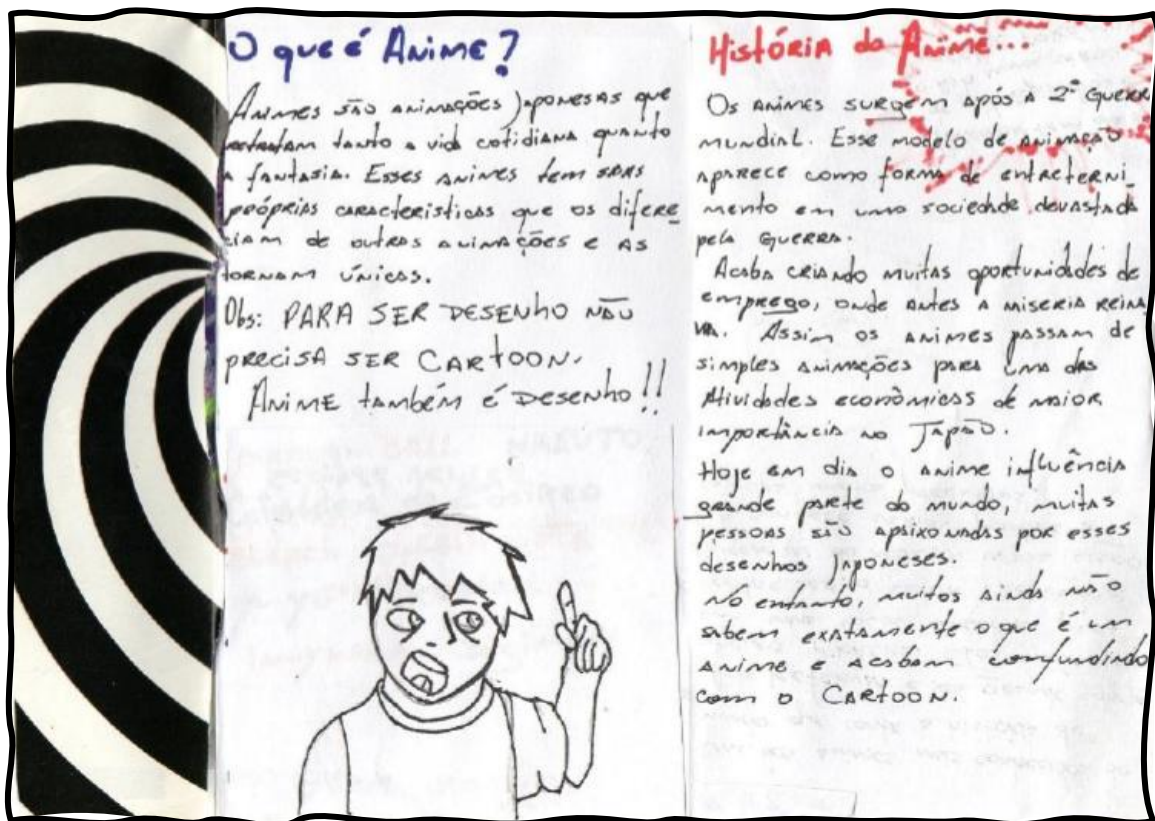 O que é Anime?
Animes são animações japonesas que
retratam tanto a vida cotidiana quanto
a fantasia. Esses animes tem suas
próprias caracteristicas que os difere
ciam de outras animações e as
tornam únicas.
Obs: PARA SER DESENHO NÃO
PRECISA SER CARTOON.
ANIME também é DESENHO!!
História do Anime...
Os animes surgem após a 2ª Guerr
mundial. Esse modelo de animação
aparece como forma de entreterni
mento em uma sociedade devastada
pela guerra.
Acaba criando muitas oportunidades de
emprego, onde antes a miseria reina
va. Assim os animes passam de
simples animações para uma das
Atividades econômicas de maior
importância no Japão.
Hoje em dia o anime influência
grande parte do mundo, muitas
pessoas são apaixonadas por esses
desenhos japoneses.
No entanto, muitos ainda não
sabem exatamente o que é um
anime e acabam confundindo
com o CARTOON.